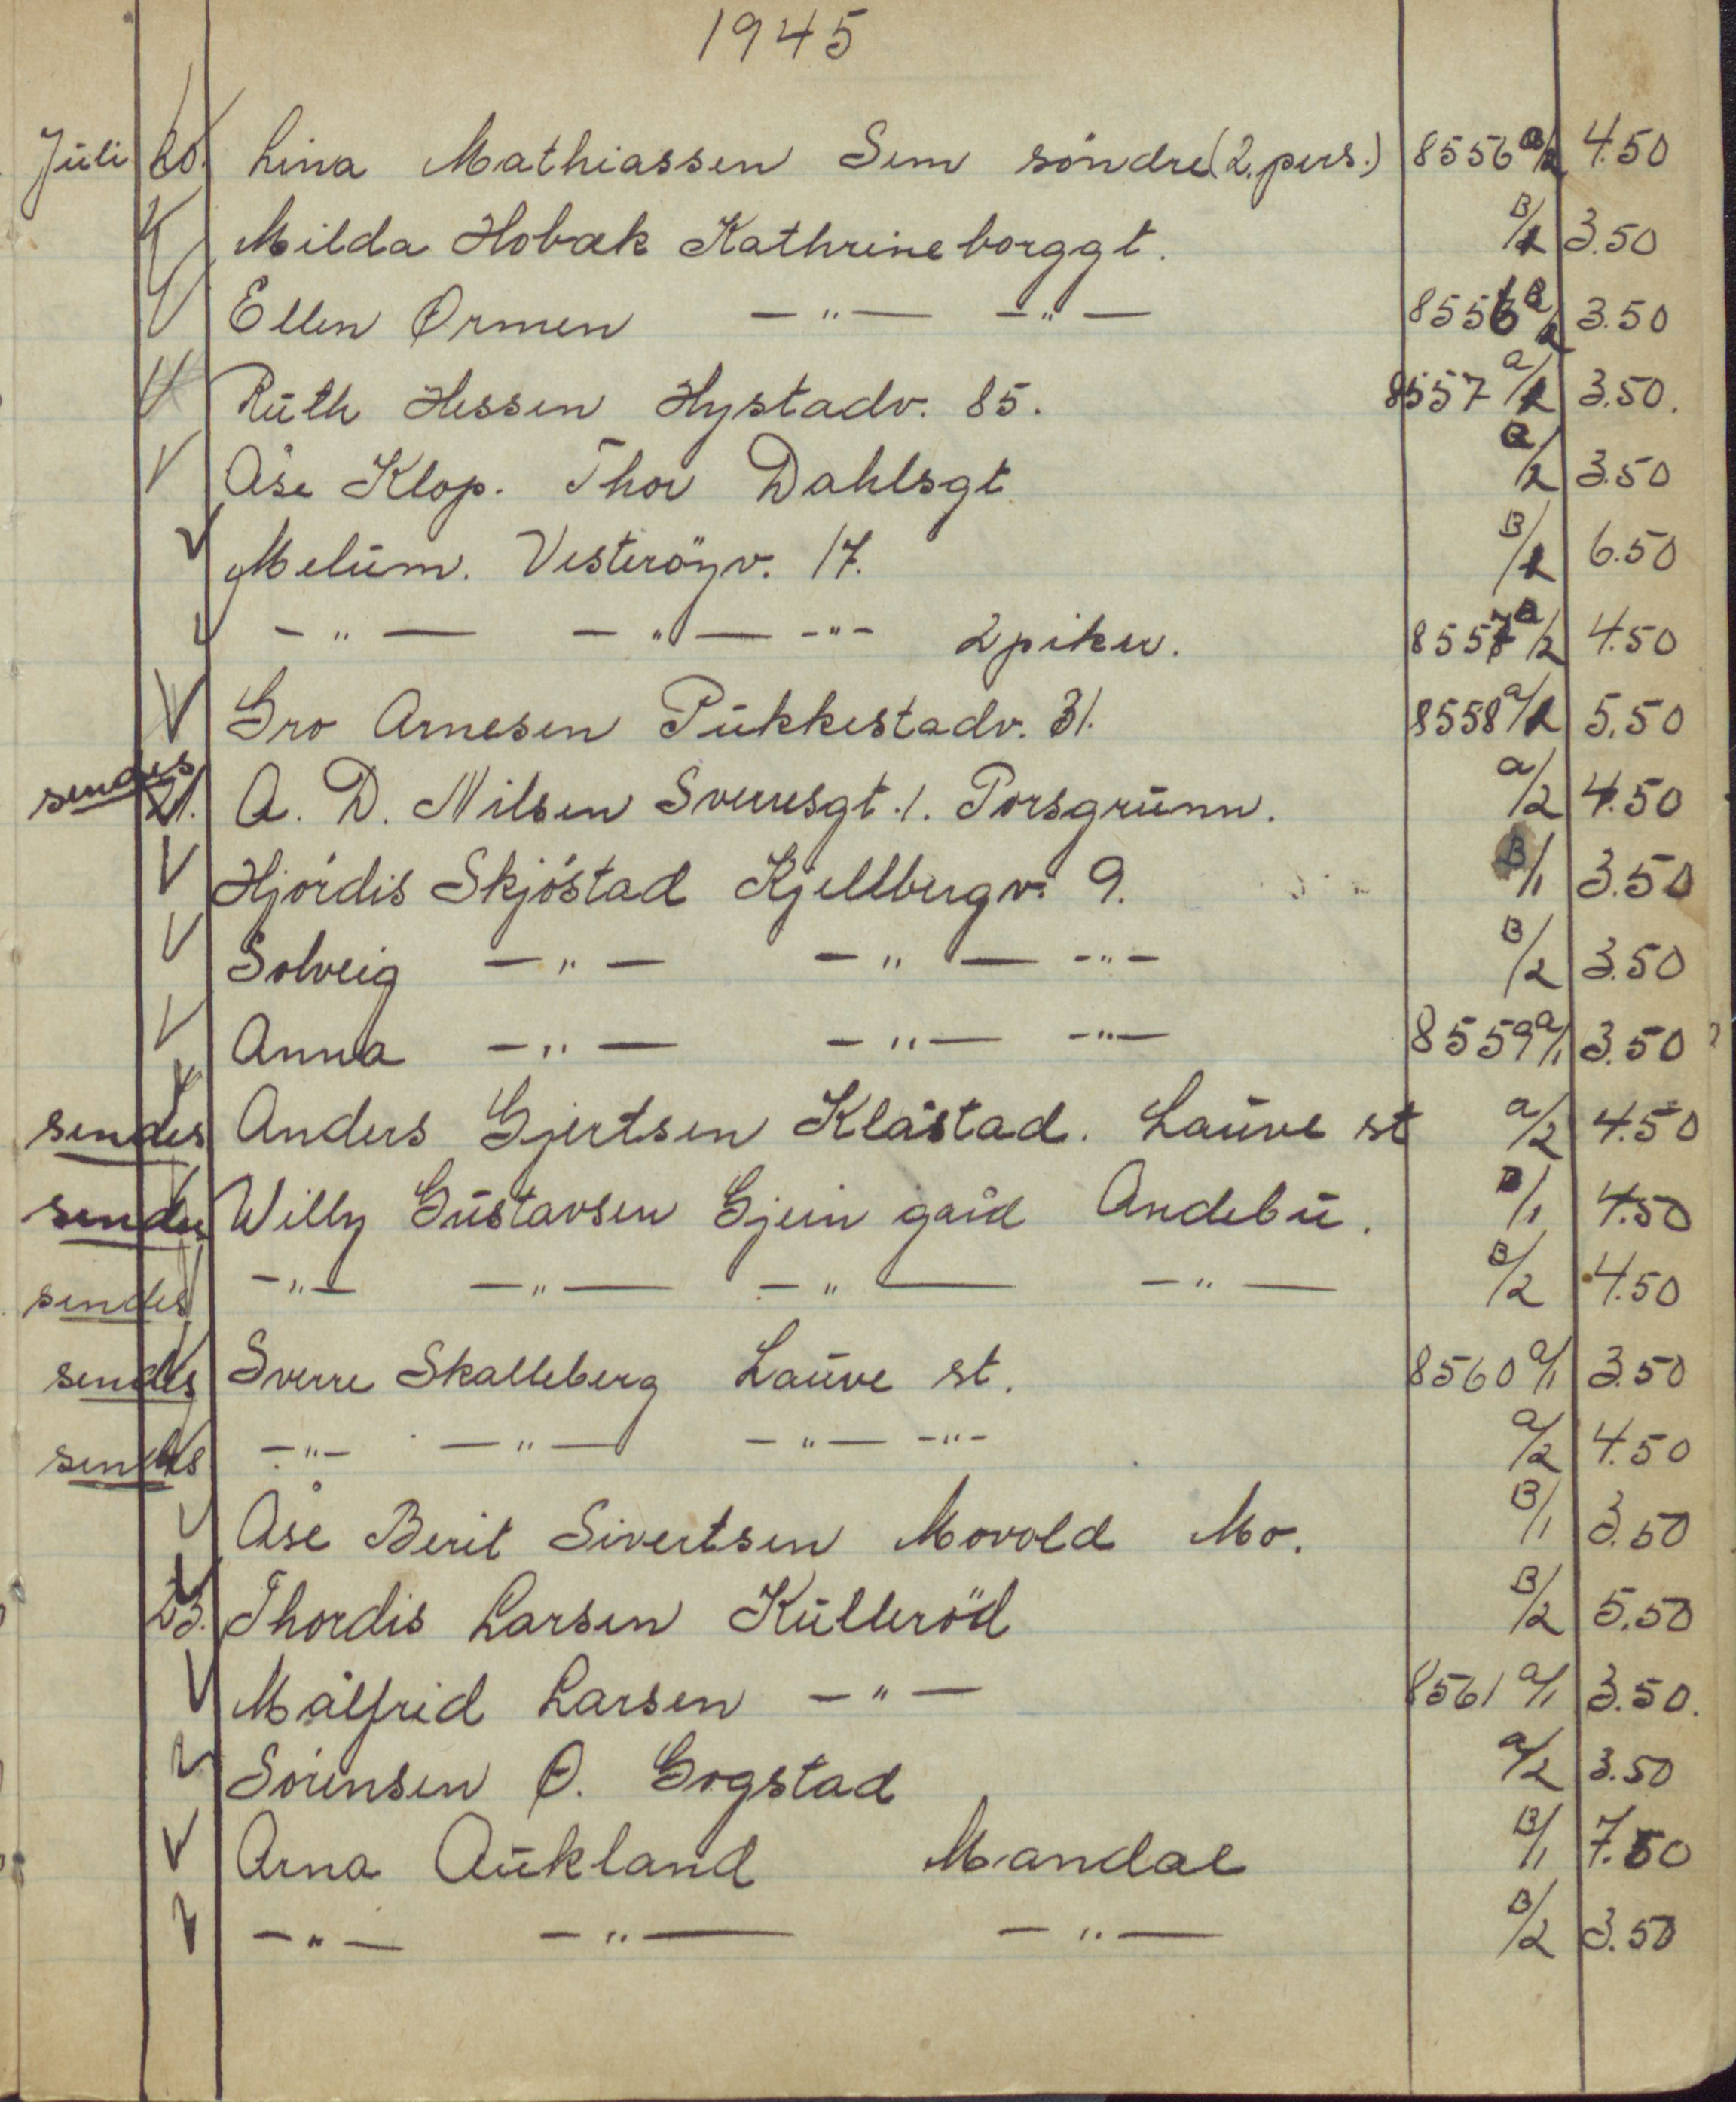 1945
Juli 20. Lina Mathiassen Sem söndre (2. pers.) 8556 a/2 4.50
Milda Hobæk Kathrineborggt. B/1 3.50
Ellen Ormen —„— —„— 8556 B/2 3.50
Ruth Hessen Hystadv. 85. 8557 a/1 3.50.
Åse Klop. Thor Dahlsgt a/2 3.50
Melum. Vesteröyv. 17. B/1 6.50
—„— —„— -„- 2 piker. 8557 B/2 4.50
Gro Arnesen Pukkestadv. 31. 8558 a/1 5.50
sendes 21. A. D. Nilsen Sverresgt. 1. Porsgrunn. a/2 4.50
Hjördis Skjöstad Kjellbergv. 9. B/1 3.50
Solveig —„— —„— -„- B/2 3.50
Anna —„— —„— -„- 8559 a/1 3.50
sendes Anders Gjertsen Klåstad. Lauve st a/2 4.50
sendes Willy Gustavsen Gjein gård Andebu. B/1 4.50
sendes —„— —„— —„— —„— B/2 4.50
sendes Sverre Skalleberg Lauve st. 8560 a/1 3.50
sendes —„— —„— —„— -„- a/2 4.50
Åse Berit Sivertsen Movold Mo. B/1 3.50
23. Thordis Larsen Kulleröd B/2 5.50
Målfrid Larsen —„— 8561 a/1 3.50.
Sörensen O. Gogstad a/2 3.50
Arna Aukland Mandal B/1 7.50
—„— —„— —„— B/2 3.50